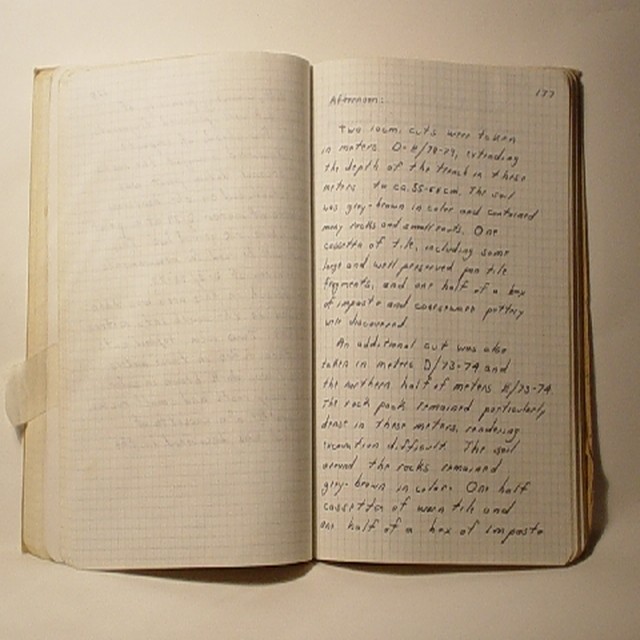 177
Afternoon:
Two 10cm. cuts were taken
in meters D-E/78-79, extending
the depth of the trench in these
meters to ca. 55-65cm. The soil
was grey-brown in color and contained
many rocks and small roots. One
cassetta of tile, including some
large and well preserved pan tile
fragments, and one half of a box
of impasto and coarseware pottery
were discovered.
An additional cut was also
taken in meters D/73-74 and
the northern half of meters E/73-74.
The rock pack remained particularly
dense in these meters, rendering
excavation difficult. The soil
around the rocks remained
grey-brown in color. One half
cassetta of worn tile and
one half of a box of impasto